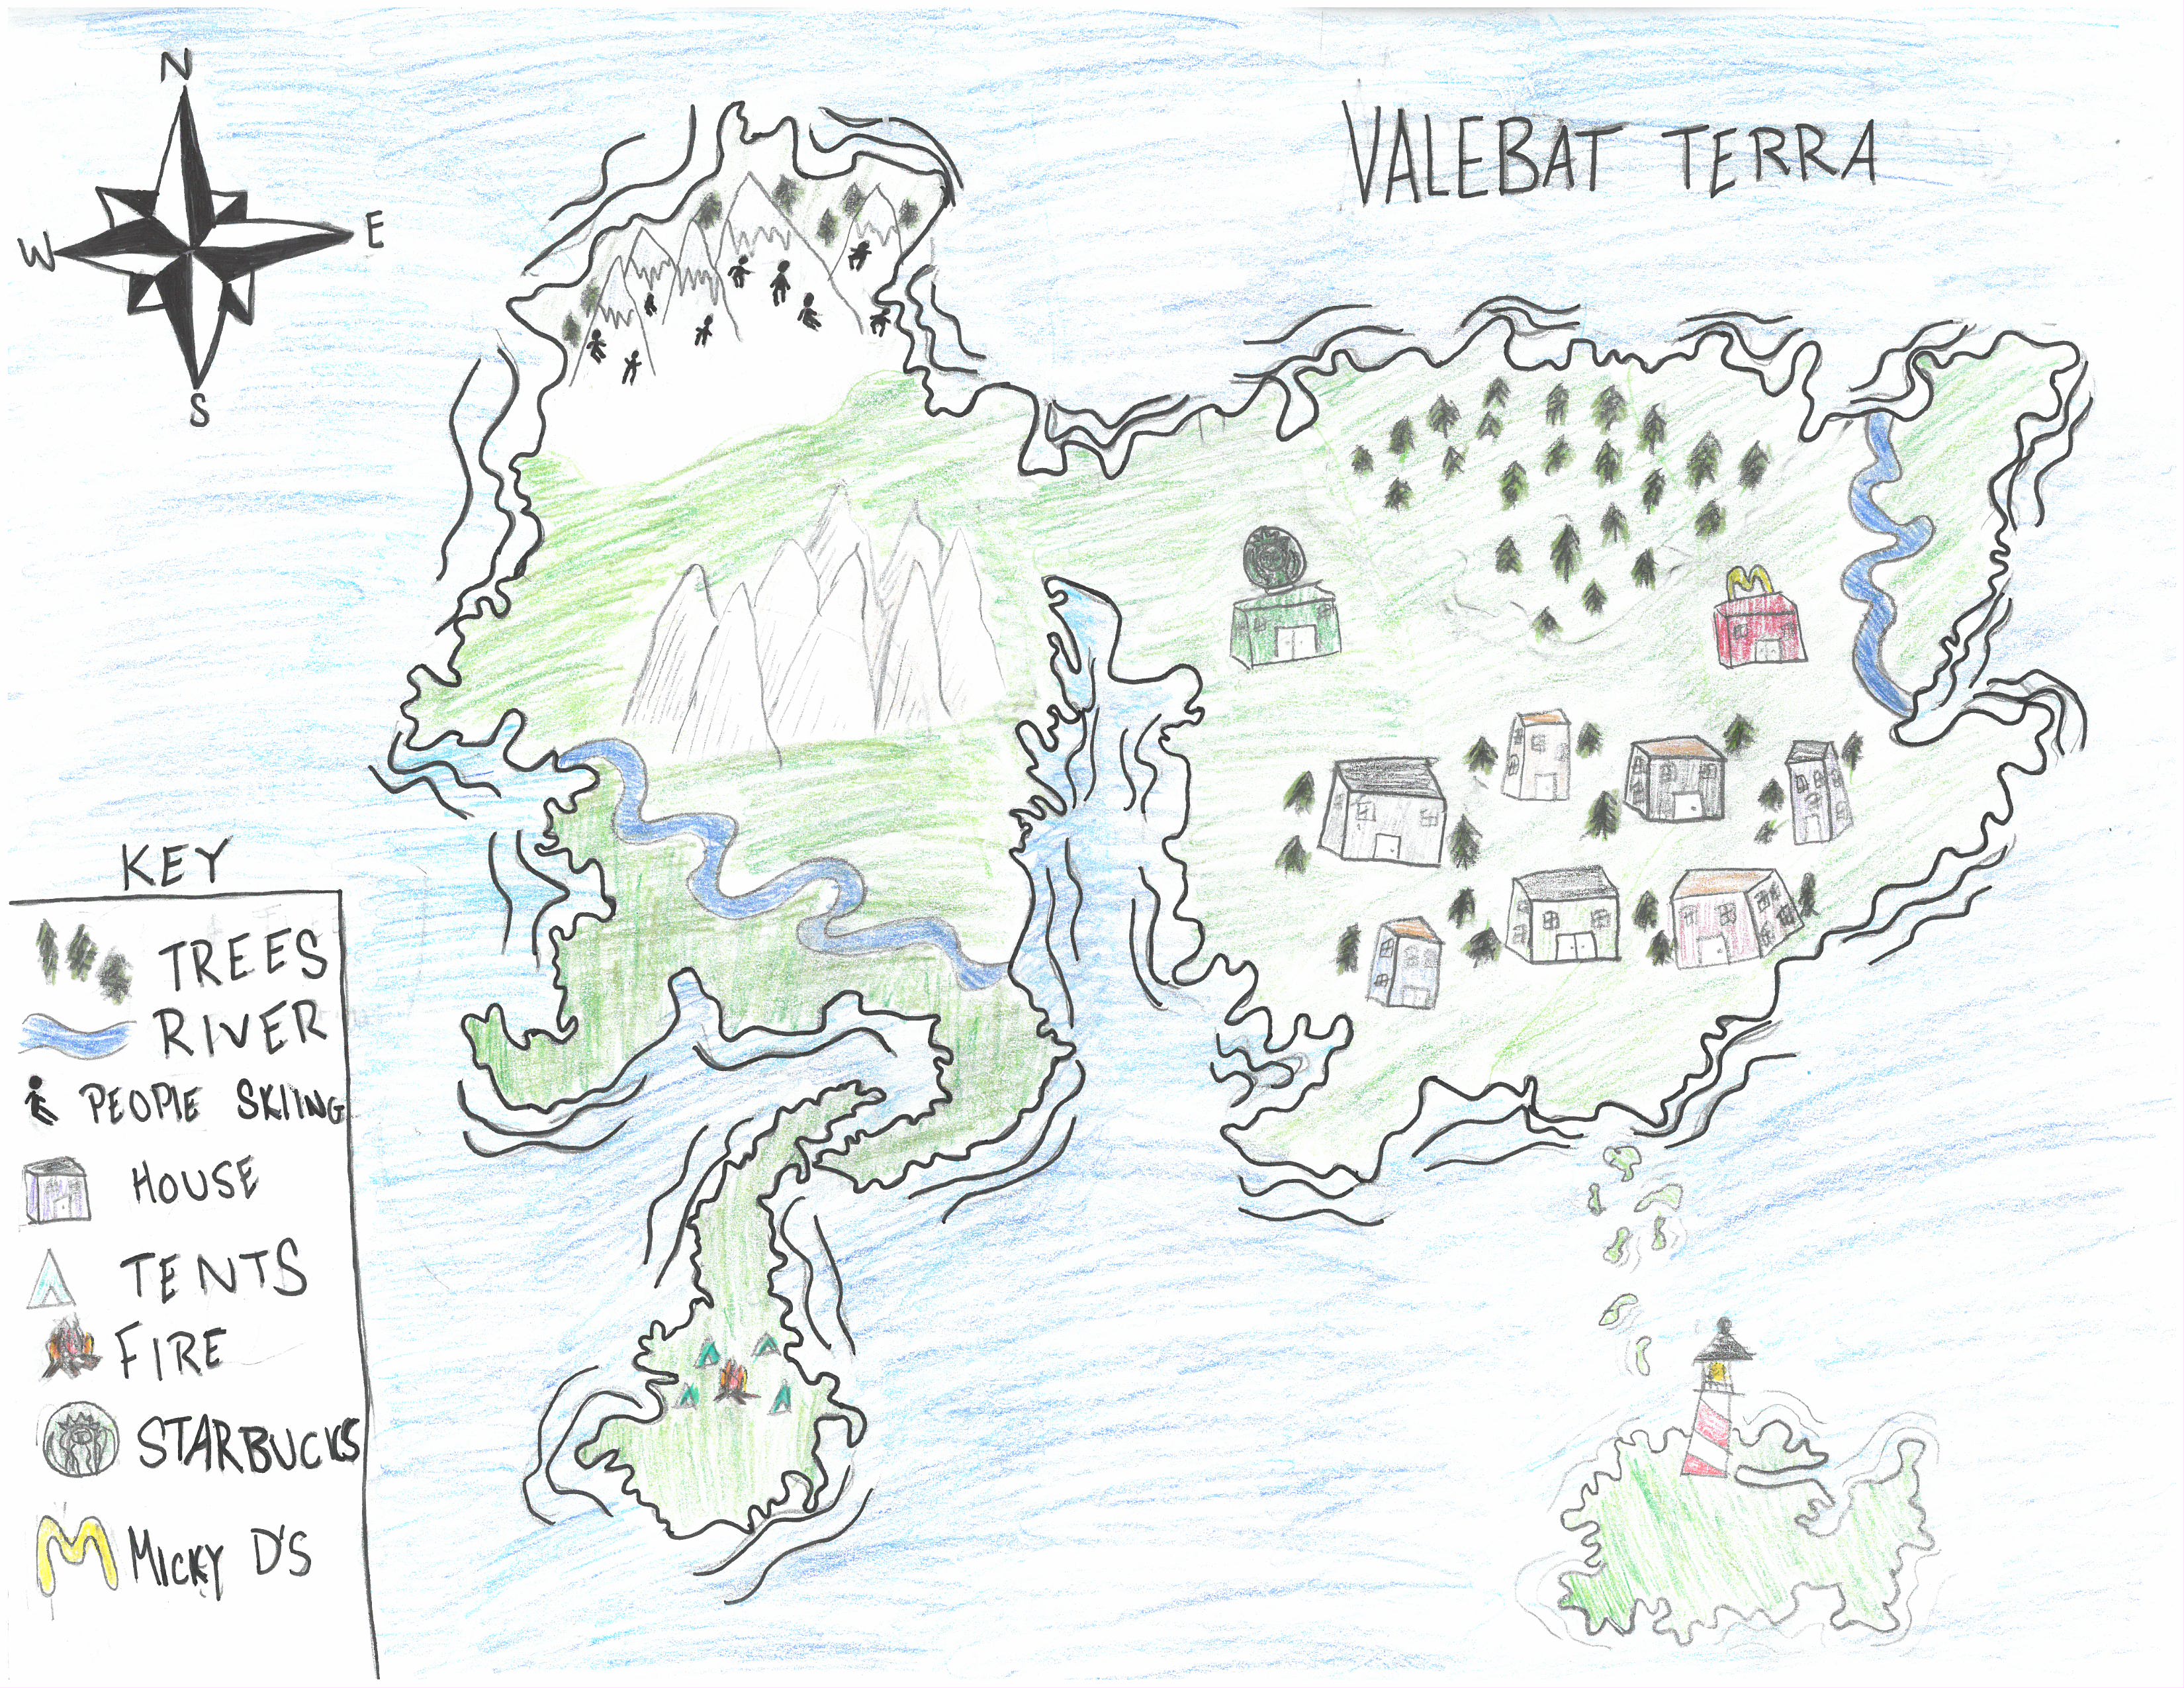 N
VALEBAT TERRA
W
E
S
KEY
TREES
RIVER
PEOPLE SKIING
HOUSE
TENTS
FIRE
STARBUCKS
MICKY D'S